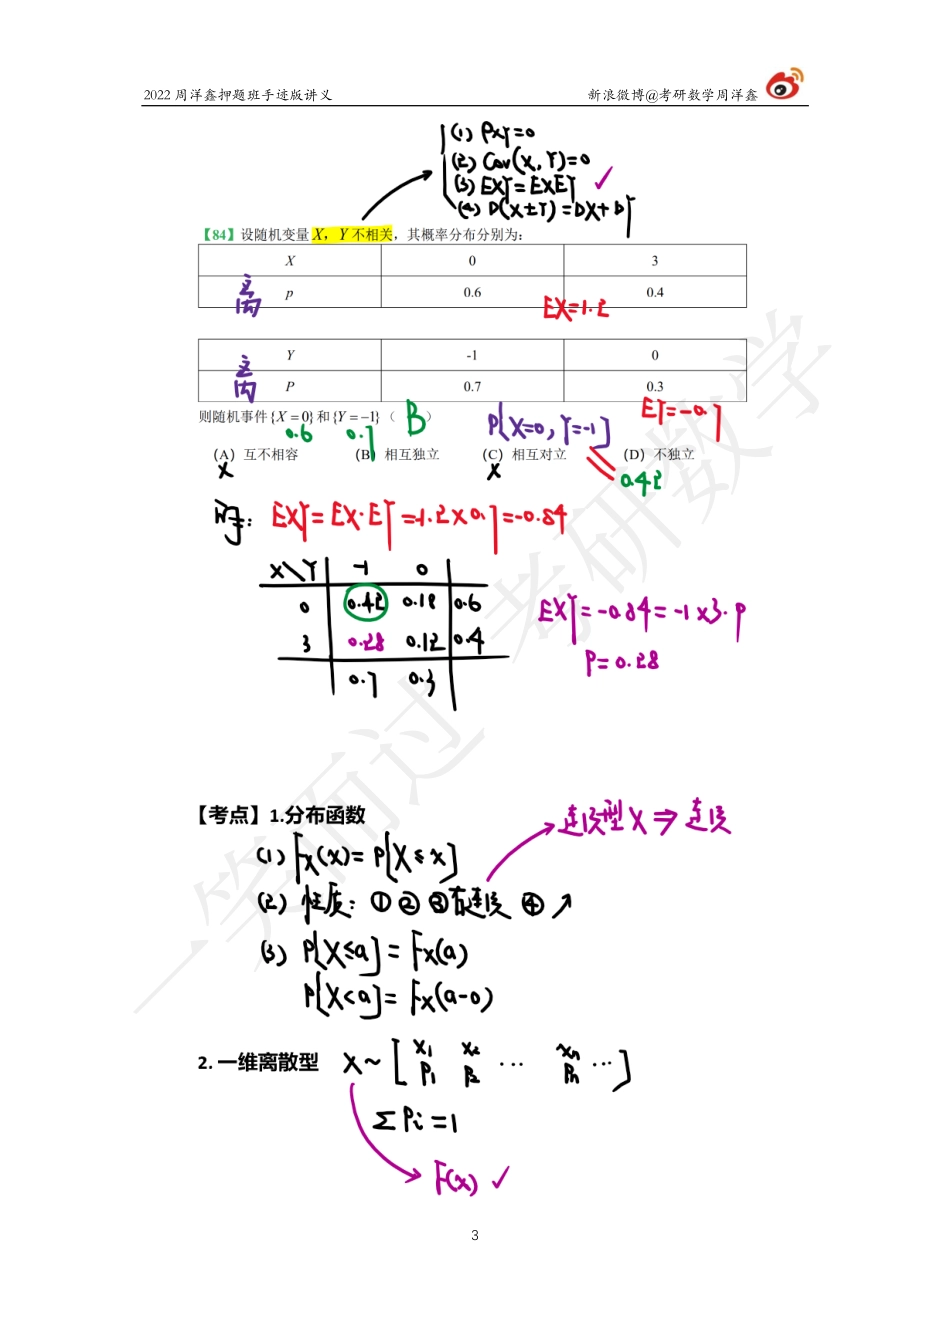 2022 周洋鑫押题班手迹版讲义 新浪微博@考研数学周洋鑫
(1) ρXY=0
(2) Cov(X,Y)=0
(3) EXY=EXEY ✓
(4) D(X±Y)=DX+DY
【84】设随机变量 X，Y 不相关，其概率分布分别为：
X 0 3
p 0.6 0.4
离 EX=1.2
Y -1 0
P 0.7 0.3
离 EY=-0.7
则随机事件{X=0}和{Y=-1}（ B ）
0.6 0.7 P{X=0,Y=-1}
（A）互不相容 （B）相互独立 （C）相互对立 （D）不独立
× × 0.42
解: EXY=EX·EY=-1.2×0.7=-0.84
X\Y -1 0
0 0.42 0.18 0.6
3 0.28 0.12 0.4
0.7 0.3
EXY=-0.84=-1×3·P
P=0.28
【考点】1.分布函数
连续型X⇒连续
(1) FX(x)=P{X≤x}
(2) 性质: ① ② ③右连续 ④↗
(3) P{X≤a}=FX(a)
P{X<a}=FX(a-0)
2. 一维离散型 X~[x1 x2 … xn …]
P1 P2 Pn
ΣPi=1
F(x) ✓
一笑而过 考研数学
3